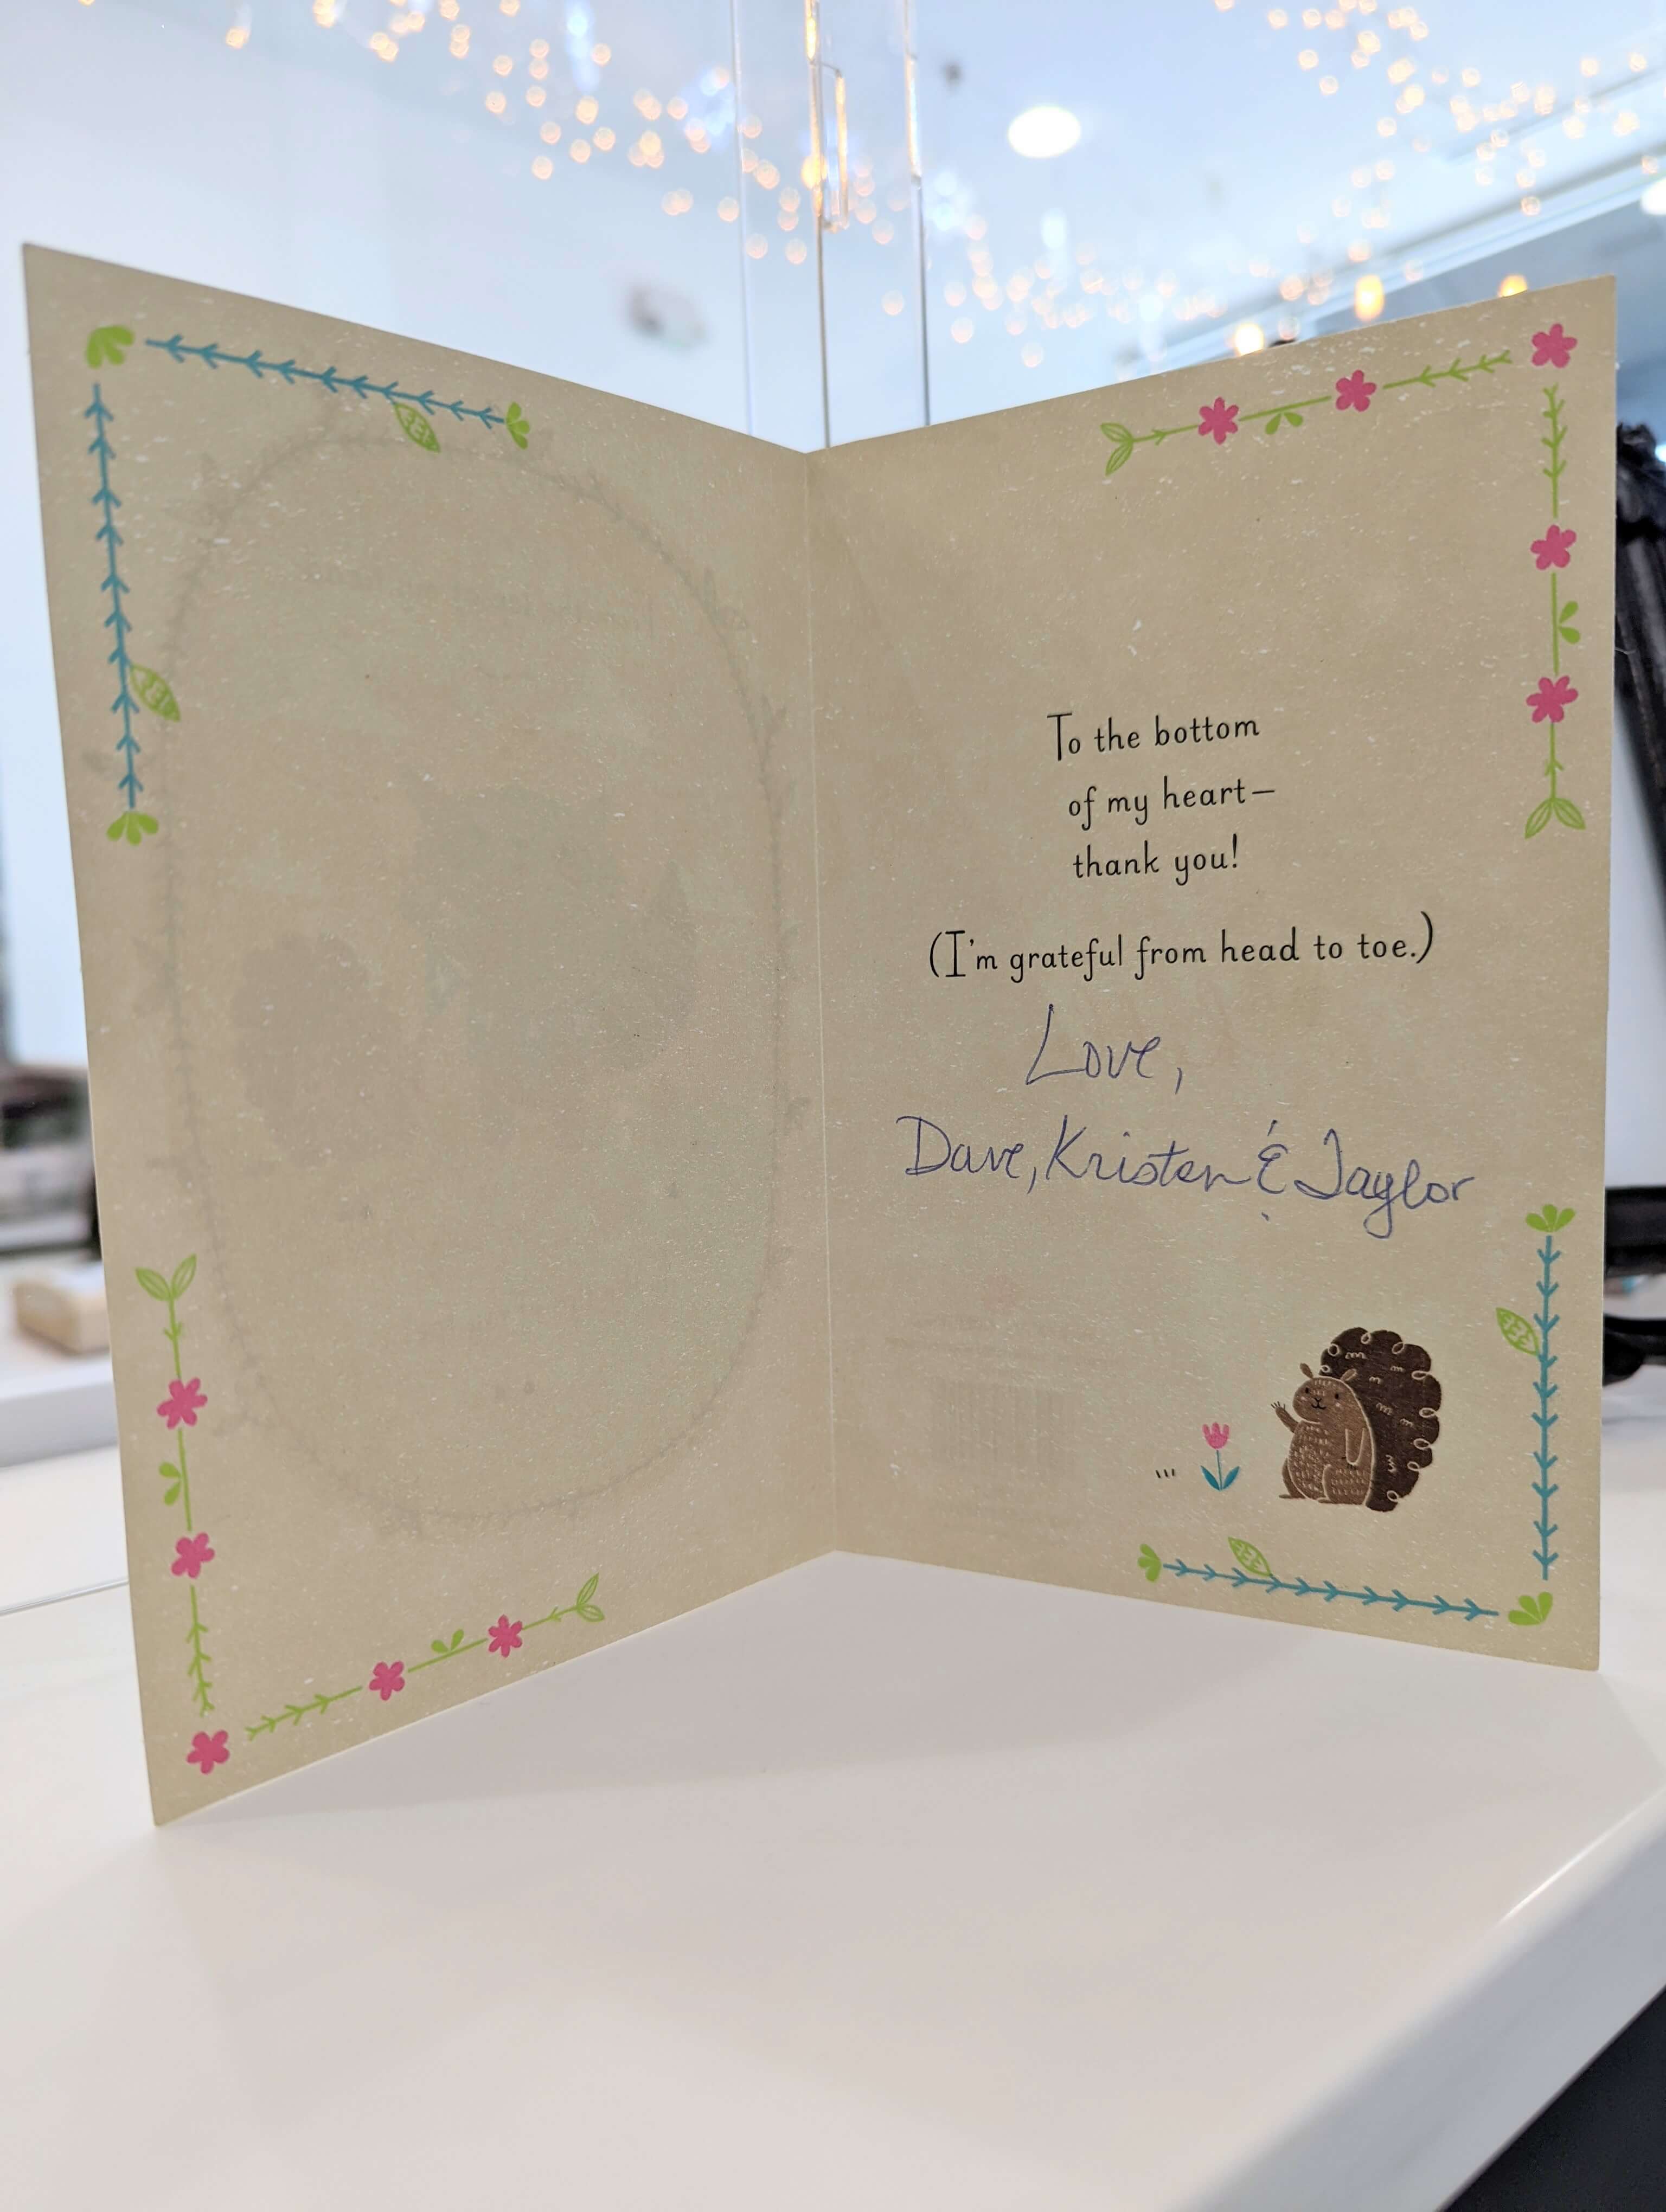 To the bottom
of my heart—
thank you!
(I'm grateful from head to toe.)
Love,
Dave, Kristen & Taylor